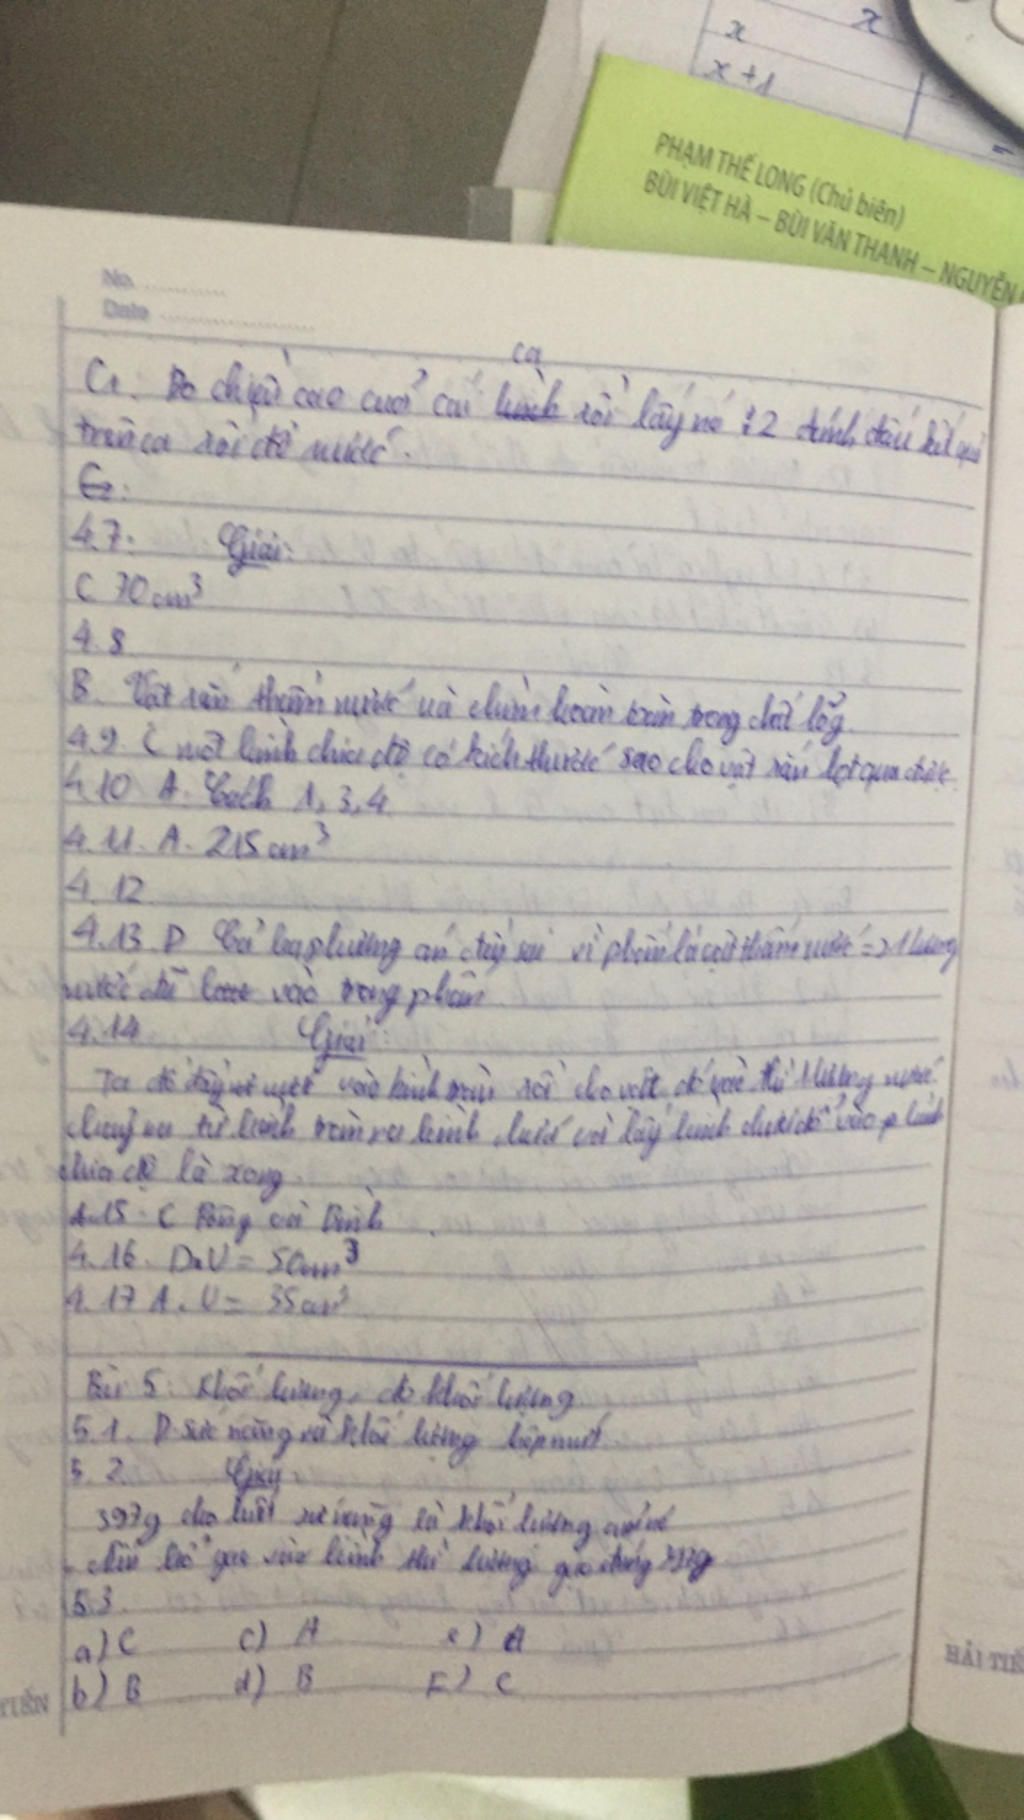 x x
x+1
PHẠM THẾ LONG (Chủ biên)
BÙI VIỆT HÀ – BÙI VĂN THANH – NGUYỄN
No.
Date
ca
C1: Đo chiều cao cuả cái bình rồi lấy nó :2 đánh dấu kết quả
trên ca rồi đổ nước.
4.7: Giải:
C 70cm³
4.8
B. Vật rắn thấm nước và chìm hoàn toàn trong chất lỏng.
4.9. C một bình chia độ có kích thước sao cho vật rắn lọt qua được.
4.10 A. Cách 1, 3, 4
4.11. A. 215cm³
4.12
4.13 D Cả ba phương án đều sai vì phấn là vật thấm nước => 1 lượng
nước đã vào trong phấn
4.14 Giải
Ta đổ đầy nước vào bình tràn rồi cho vật đó vào thì 1 lượng nước
chảy ra từ bình tràn ra bình chứa rồi lấy bình chứa đổ vào bình
chia độ là xong
4.15. C Bông và Bình
4.16. D. V = 50cm³
4.17 A. V = 35cm³
Bài 5: Khối lượng, đo khối lượng
5.1. D. Sức nặng và khối lượng hộp mứt
5.2. Giải
397g cho biết sức nặng là khối lượng của nó
5.3
a) C c) A e) A
b) B d) B F) C